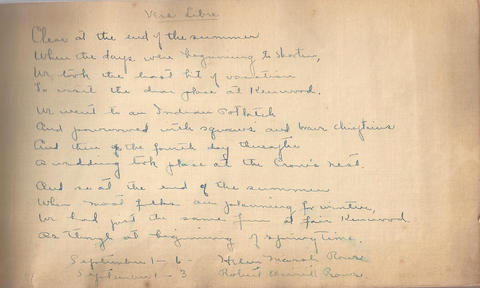 Vers Libre
Close at the end of the summer
When the days were beginning to shorten,
We took the last bit of vacation
To visit the dear place at Kenwood.
We went to an Indian Potlatch
And powwowed with squaws and brave chieftins
And then of the fourth day thereafter
A wedding took place at the Crow's nest.
And so at the end of the summer
When most folks are planning for winter,
We had just the same fun at fair Kenwood
As though at beginning of springtime.
September 1-6- Helen Marsh Rowe
September 1-3 Robert Rowe.